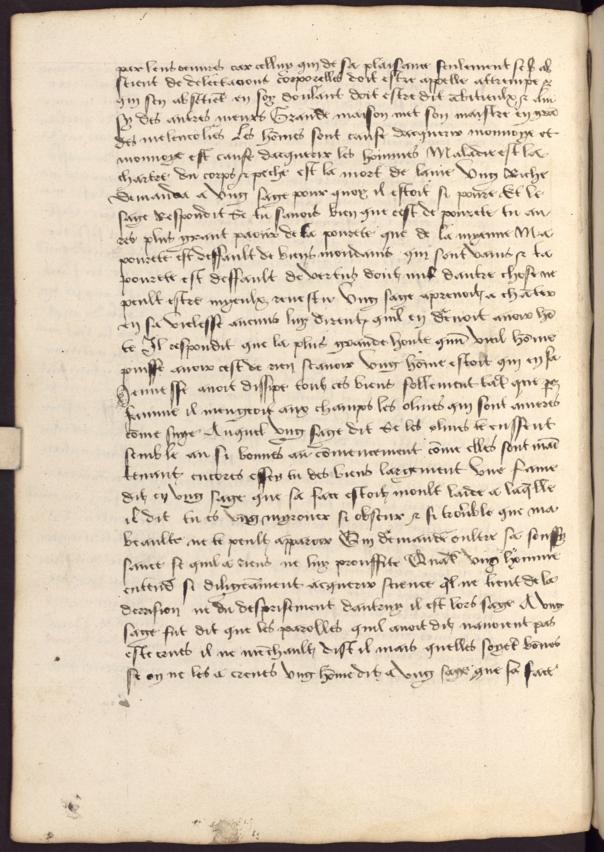 par leurs oeuvres car celluy qui de sa plaisance seulement se ab
stient de delectacions corporelles doit estre appelle attrempe &
qui sen abstient en soy doulant doit estre dit
sy des autres meurs Grande maison met son maistre en
des melencolies Les hõmes sont cause dacquerir monnoye et
monnoye est cause dacquerir les hommes Maladie est la
chartre du corps & peche est la mort de lame Ung riche
demanda a Ung sage pour quoy il estoit si povre Et le
sage respondit Se tu savois bien que cest de povrete tu au
res plus grant paour de ta povrete que de la myenne Ma
povrete est deffault de biens mondains qui sont vains & ta
povrete est deffault de vertus dont nul dautre chose ne
peult estre myeulx revestu Ung sage aprenoit a chãter
en sa viellesse aucuns luy dirent quil en devoit avoir hõ
te Il respondit que la plus grande honte que viel hõme
puisse avoir cest de rien scavoir Ung hõme estoit qui en sa
Jeunesse avoit dissipe tout ces biens follement tal que par
famine il mengeoit aux champs les olives qui sont ameres
cõme suye Auquel Ung sage dit Se les olives te eussent
semble au si bonnes au cõmencement cõme elles font mai
tenant encores eusses tu des biens largement Une fame
dit en Ung sage que sa face estoit moult laide a laqlle
il dit tu es Ung myrouer si obscur & si trouble que ma
beaulte ne te peult apparoir Qui demande oultre sa souffi
sance ce quil a riens ne luy prouffite Quãt Ung hõmme
entend si diligãment acquerir science Ql ne tient de la
derrision ne du desprisement dautruy il est lors sage A Ung
sage fut dit que les parolles quil avoit dit navoient pas
este crues il ne me chault dist il mais quelles soyet bones
se on ne les a creues Ung hõme dit a Ung sage que sa face